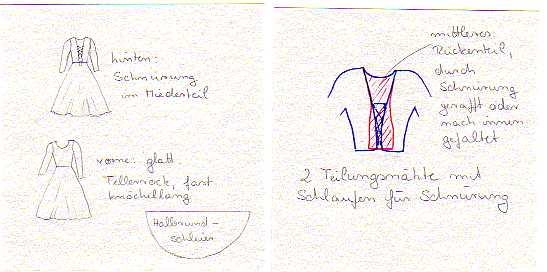 hinten:
Schnürung
im Miederteil
vorne: glatt
Tellerrock, fast
knöchellang
Halbrund-
schleier
mittleres
Rückenteil,
durch
Schnürung
gerafft oder
nach innen
gefaltet
2 Teilungsnähte mit
Schlaufen für Schnürung